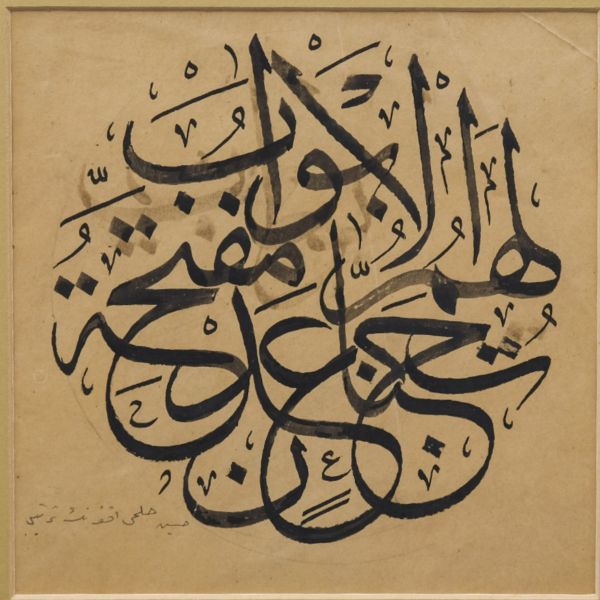 جنات عدن مفتحة لهم الأبواب
حسين حلمى افندينك ترتيبى